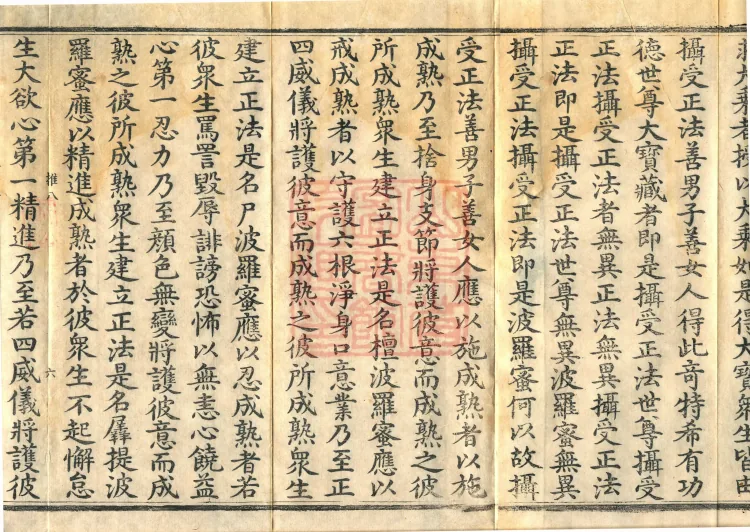 大乘者授以大乘如是得大寶衆生皆由
攝受正法善男子善女人得此奇特希有功
德世尊大寶藏者即是攝受正法世尊攝受
正法攝受正法者無異正法無異攝受正法
正法即是攝受正法世尊無異波羅蜜無異
攝受正法攝受正法即是波羅蜜何以故攝
受正法善男子善女人應以施成熟者以施
成熟乃至捨身支節將護彼意而成熟之彼
所成熟衆生建立正法是名檀波羅蜜應以
戒成熟者以守護六根淨身口意業乃至正
四威儀將護彼意而成熟之彼所成熟衆生
建立正法是名尸波羅蜜應以忍成熟者若
彼衆生罵詈毀辱誹謗恐怖以無恚心饒益
心第一忍力乃至顏色無變將護彼意而成
熟之彼所成熟衆生建立正法是名羼提波
羅蜜應以精進成熟者於彼衆生不起懈怠
推八 六
生大欲心第一精進乃至若四威儀將護彼